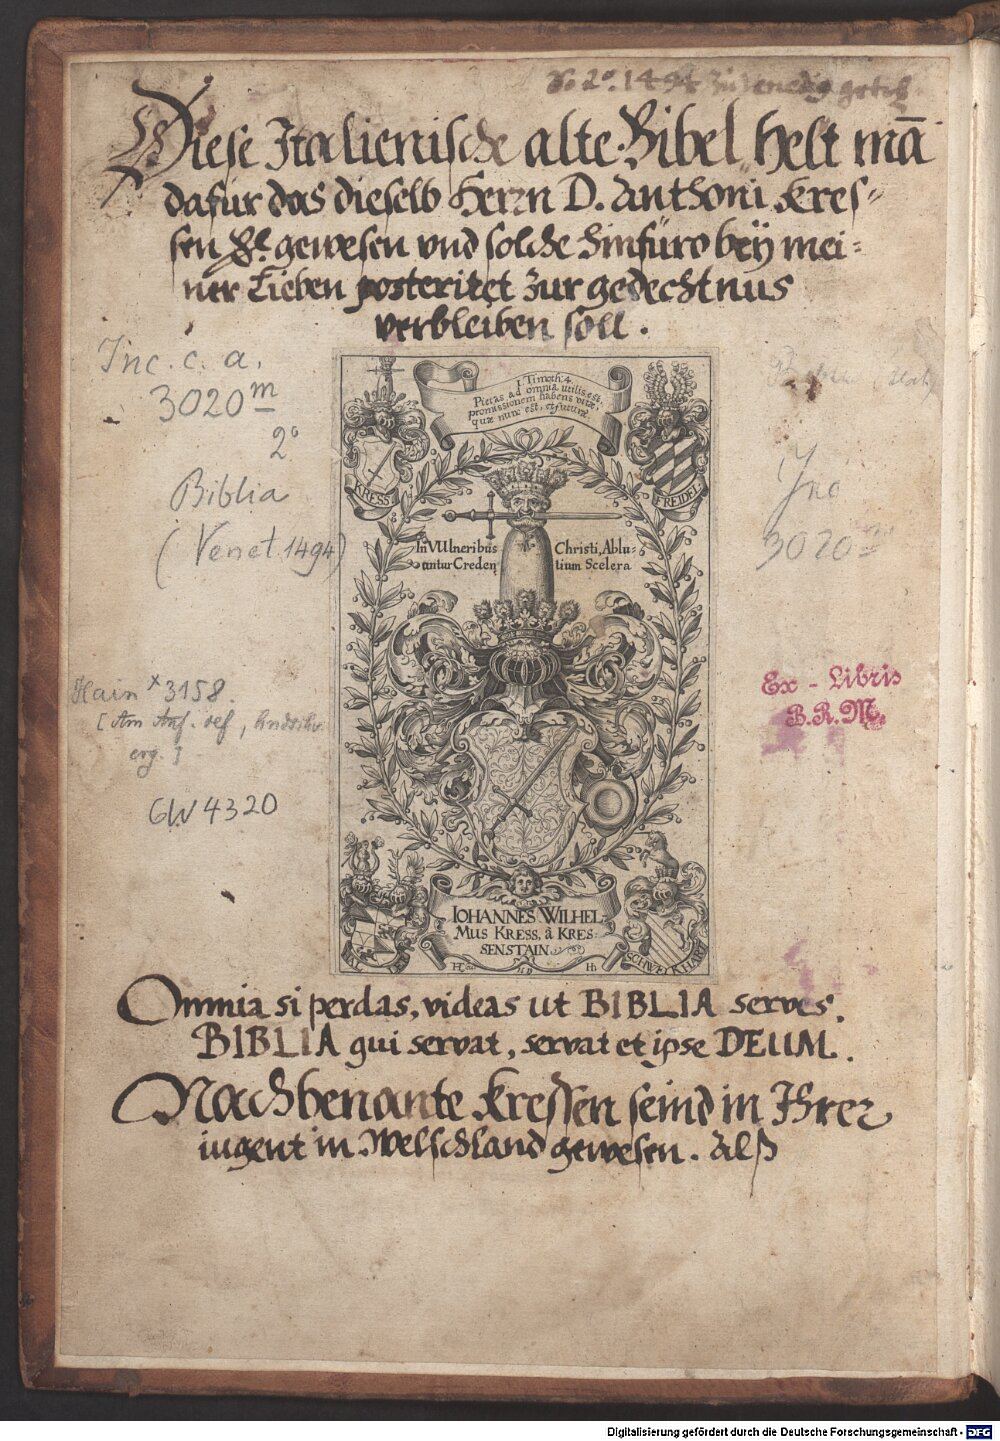 Ao 2o. 1494 Zu Venedig
Diese Italienische alte Bibel helt mā
dafur das dieselb Herrn D. Anthoni Kres-
sen &c. gewesen vnd solche hinfüro bey mei-
ner Lieben posteritet zur gedechtnus
verbleiben soll.
Inc. c. a.
3020 m
2°
Biblia
(Venet. 1494)
Hain x 3158.
[Am Anf. def.,
erg.]
GW 4320
Inc
3020 m
Ex-Libris
B.R.M.
1 Timoth: 4.
Pietas ad omnia utilis est,
promissionem habens vitæ,
quæ nunc est, et futuræ.
KRESS
FREIDEL
In VUlneribus Christi, Ablu-
untur Credenţ tium Scelera
IOHANNES WILHEL-
MUS KRESS, â KRES-
SENSTAIN
SCHWEIKHART
Omnia si perdas, videas ut BIBLIA serves.
BIBLIA qui servat, servat et ipse DEUM.
Nachbenante Kressen seind in Ihrer
iugent in Welschland gewesen. Alß
Digitalisierung gefördert durch die Deutsche Forschungsgemeinschaft - DFG